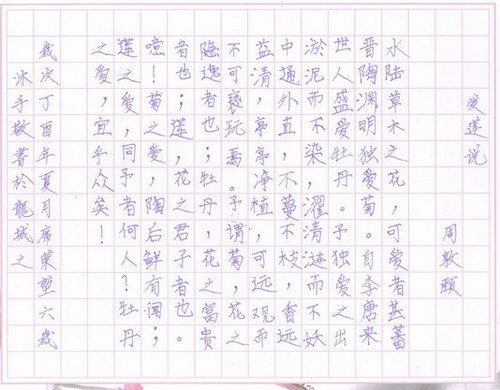 爱莲说 周敦颐
水陆草木之花,可爱者甚蕃
晋陶渊明独爱菊,自李唐来
世人盛爱牡丹。予独爱之出
淤泥而不染,濯清涟而不妖
中通外直,不蔓不枝,香远
益清,亭亭净植,可远观而
不可亵玩焉。予谓菊,花之
隐逸者也;牡丹,花之富贵
者也;莲,花之君子者也。
噫!菊之爱,陶后鲜有闻;
莲之爱,同予者何人?牡丹
之爱,宜乎众矣!
歲次丁酉年夏月席荣堃六歲
沐手敬書於龍城之